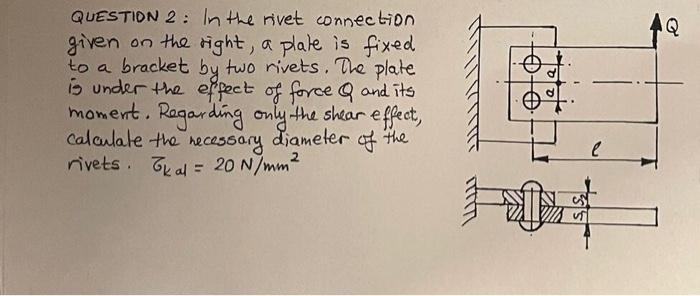 QUESTION 2: In the rivet connection
given on the right, a plate is fixed
to a bracket by two rivets. The plate
is under the effect of force Q and its
moment. Regarding only the shear effect,
calculate the necessary diameter of the
rivets. τk al = 20 N/mm²
Q
a
a
l
S₁ S₂